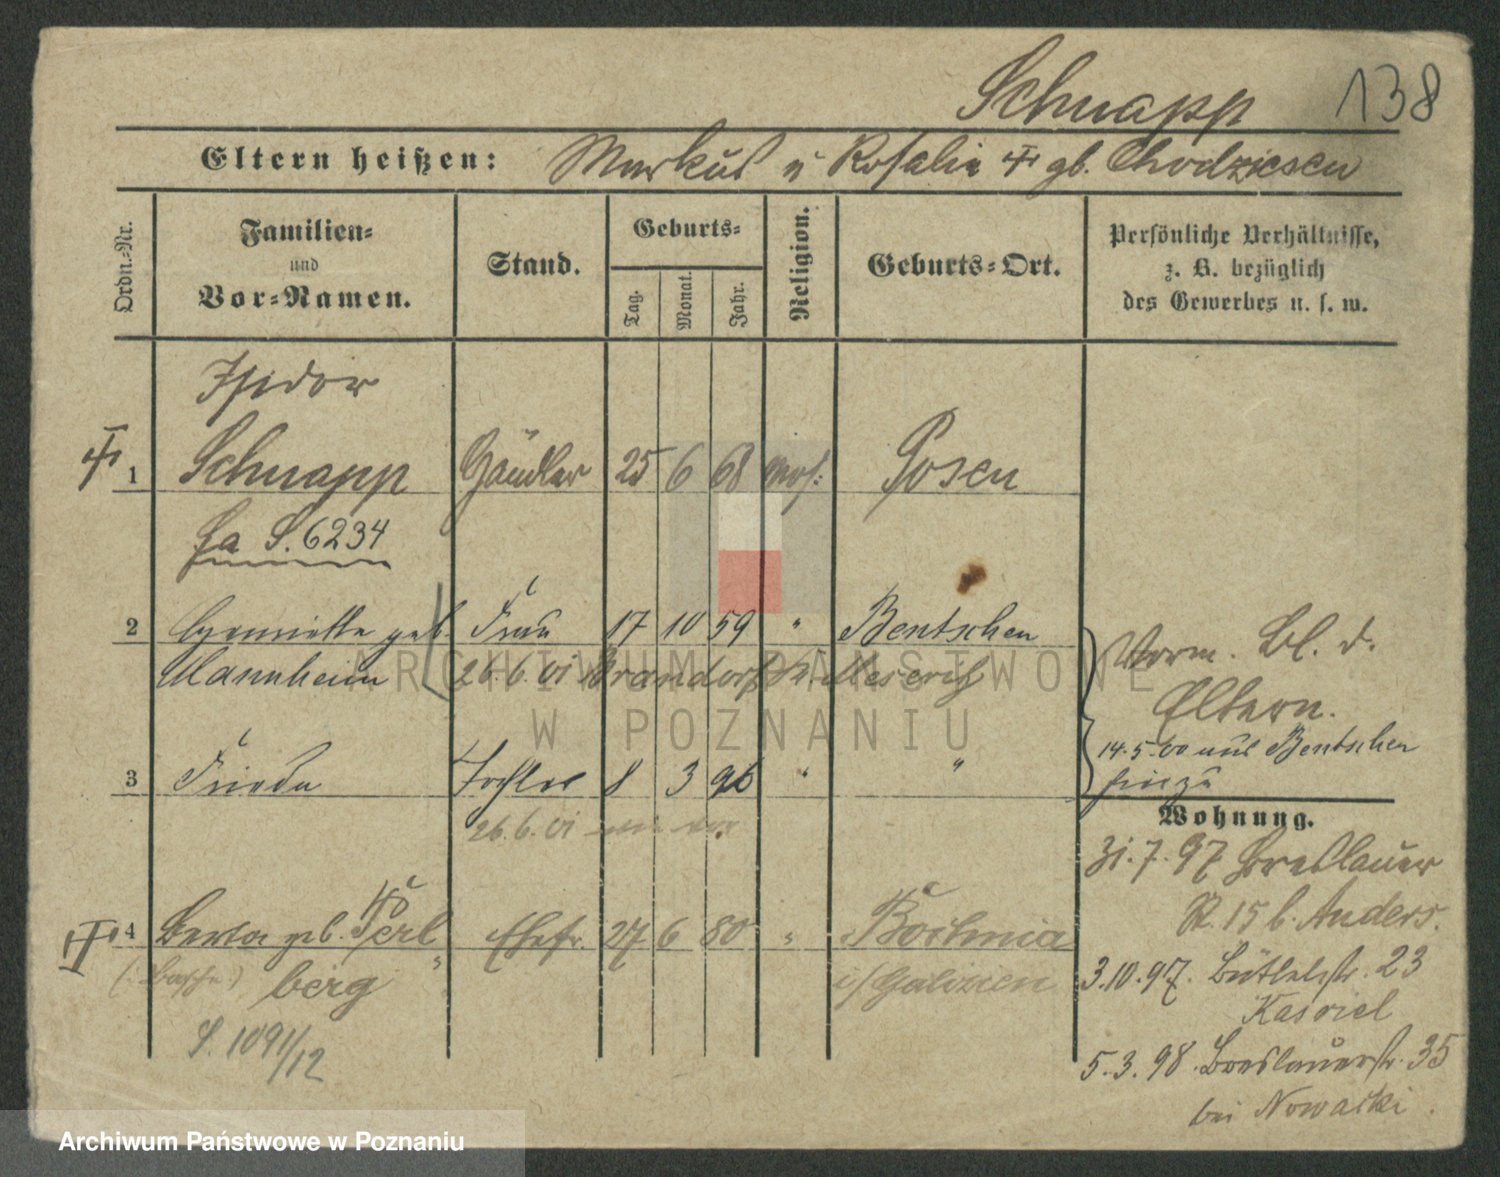 Schnapp 138
Eltern heißen: Markus u Rosalie gb. Chodziesen
Ordn.-Nr.
Familien-
und
Vor-Namen.
Stand.
Geburts-
Tag.
Monat.
Jahr.
Religion.
Geburts-Ort.
Persönliche Verhältnisse,
z. B. bezüglich
des Gewerbes u. s. w.
Isidor
1 Schnapp Händler 25 6 68 mos: Posen
S. 6234
2 Henriette geb. Frau 17 10 59 " Bentschen
Mannheim 26.6.01 Brandorf Kr. Meseritz
3 Frieda Tochter 8 3 96 " "
26.6.01 wie vor
4 geb. Perl Ehefr. 27 6 80 "
berg i/Galizien
S. 1091/12
Vorm. Bl. d.
Eltern.
14.5.00 aus Bentschen
hinzu
Wohnung.
31.7.97 Breslauer
St. 15 b. Anders.
3.10.97. Büttelstr. 23
Kasriel
5.3.98. Breslauerstr. 35
bei Nowacki.
ARCHIWUM PAŃSTWOWE
W POZNANIU
Archiwum Państwowe w Poznaniu